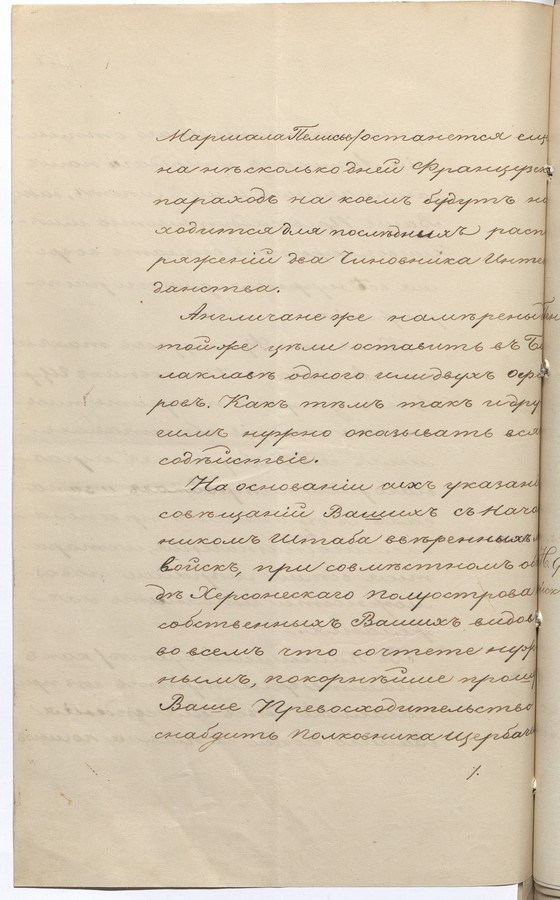 Маршала Пелисье/останется ещ
на нѣсколько дней Французск
пароходъ на коемъ будутъ на
ходится для послѣднихъ расп
ряженій два Чиновника Инте
данства.
Англичане же намѣрены
той же цѣли оставить въ Ба
лаклавѣ одного или двухъ офи
ровъ. Какъ тѣмъ такъ и дру
гимъ нужно оказывать вся
содѣйствіе.
На основаніи сихъ указан
совѣщаній Вашихъ съ Нача
никомъ Штаба ввѣренныхъ
войскъ, при совмѣстномъ об
дѣ Херсонескаго полуострова
собственныхъ Вашихъ видов
во всемъ что сочтете нуж
нымъ, покорнѣйше прошу
Ваше Превосходительство
снабдить Полковника Щербач